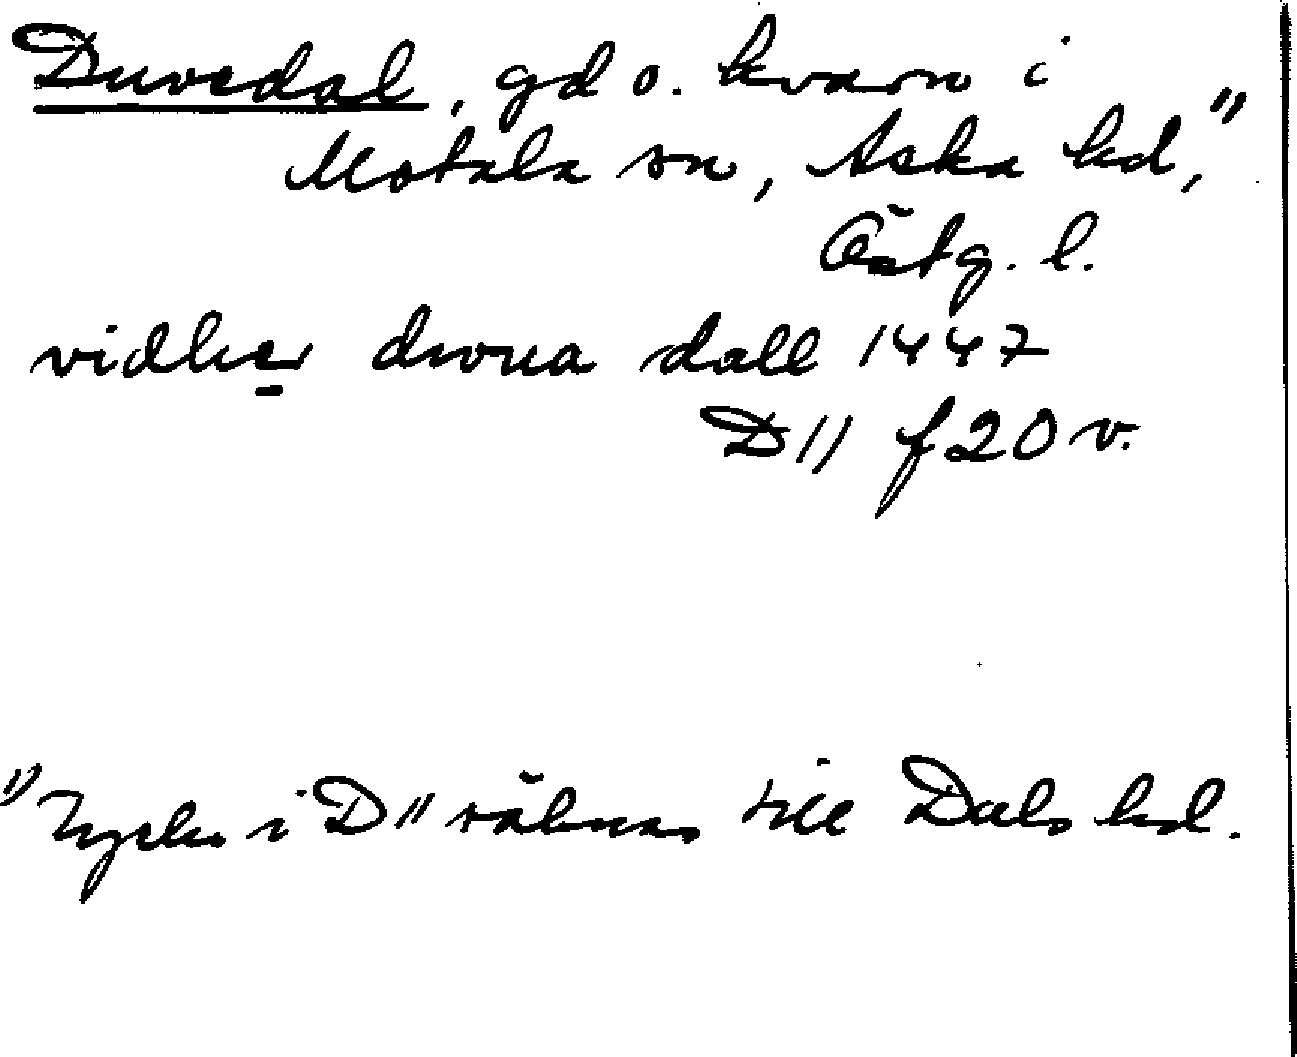 Duvedal, gd o. kvarn i
Motala sn, Aska hd,"
Östg. l.
vidher dwua dall 1447
D11 f 20 v.
"Tycks i D11 räknas till Dals hd.